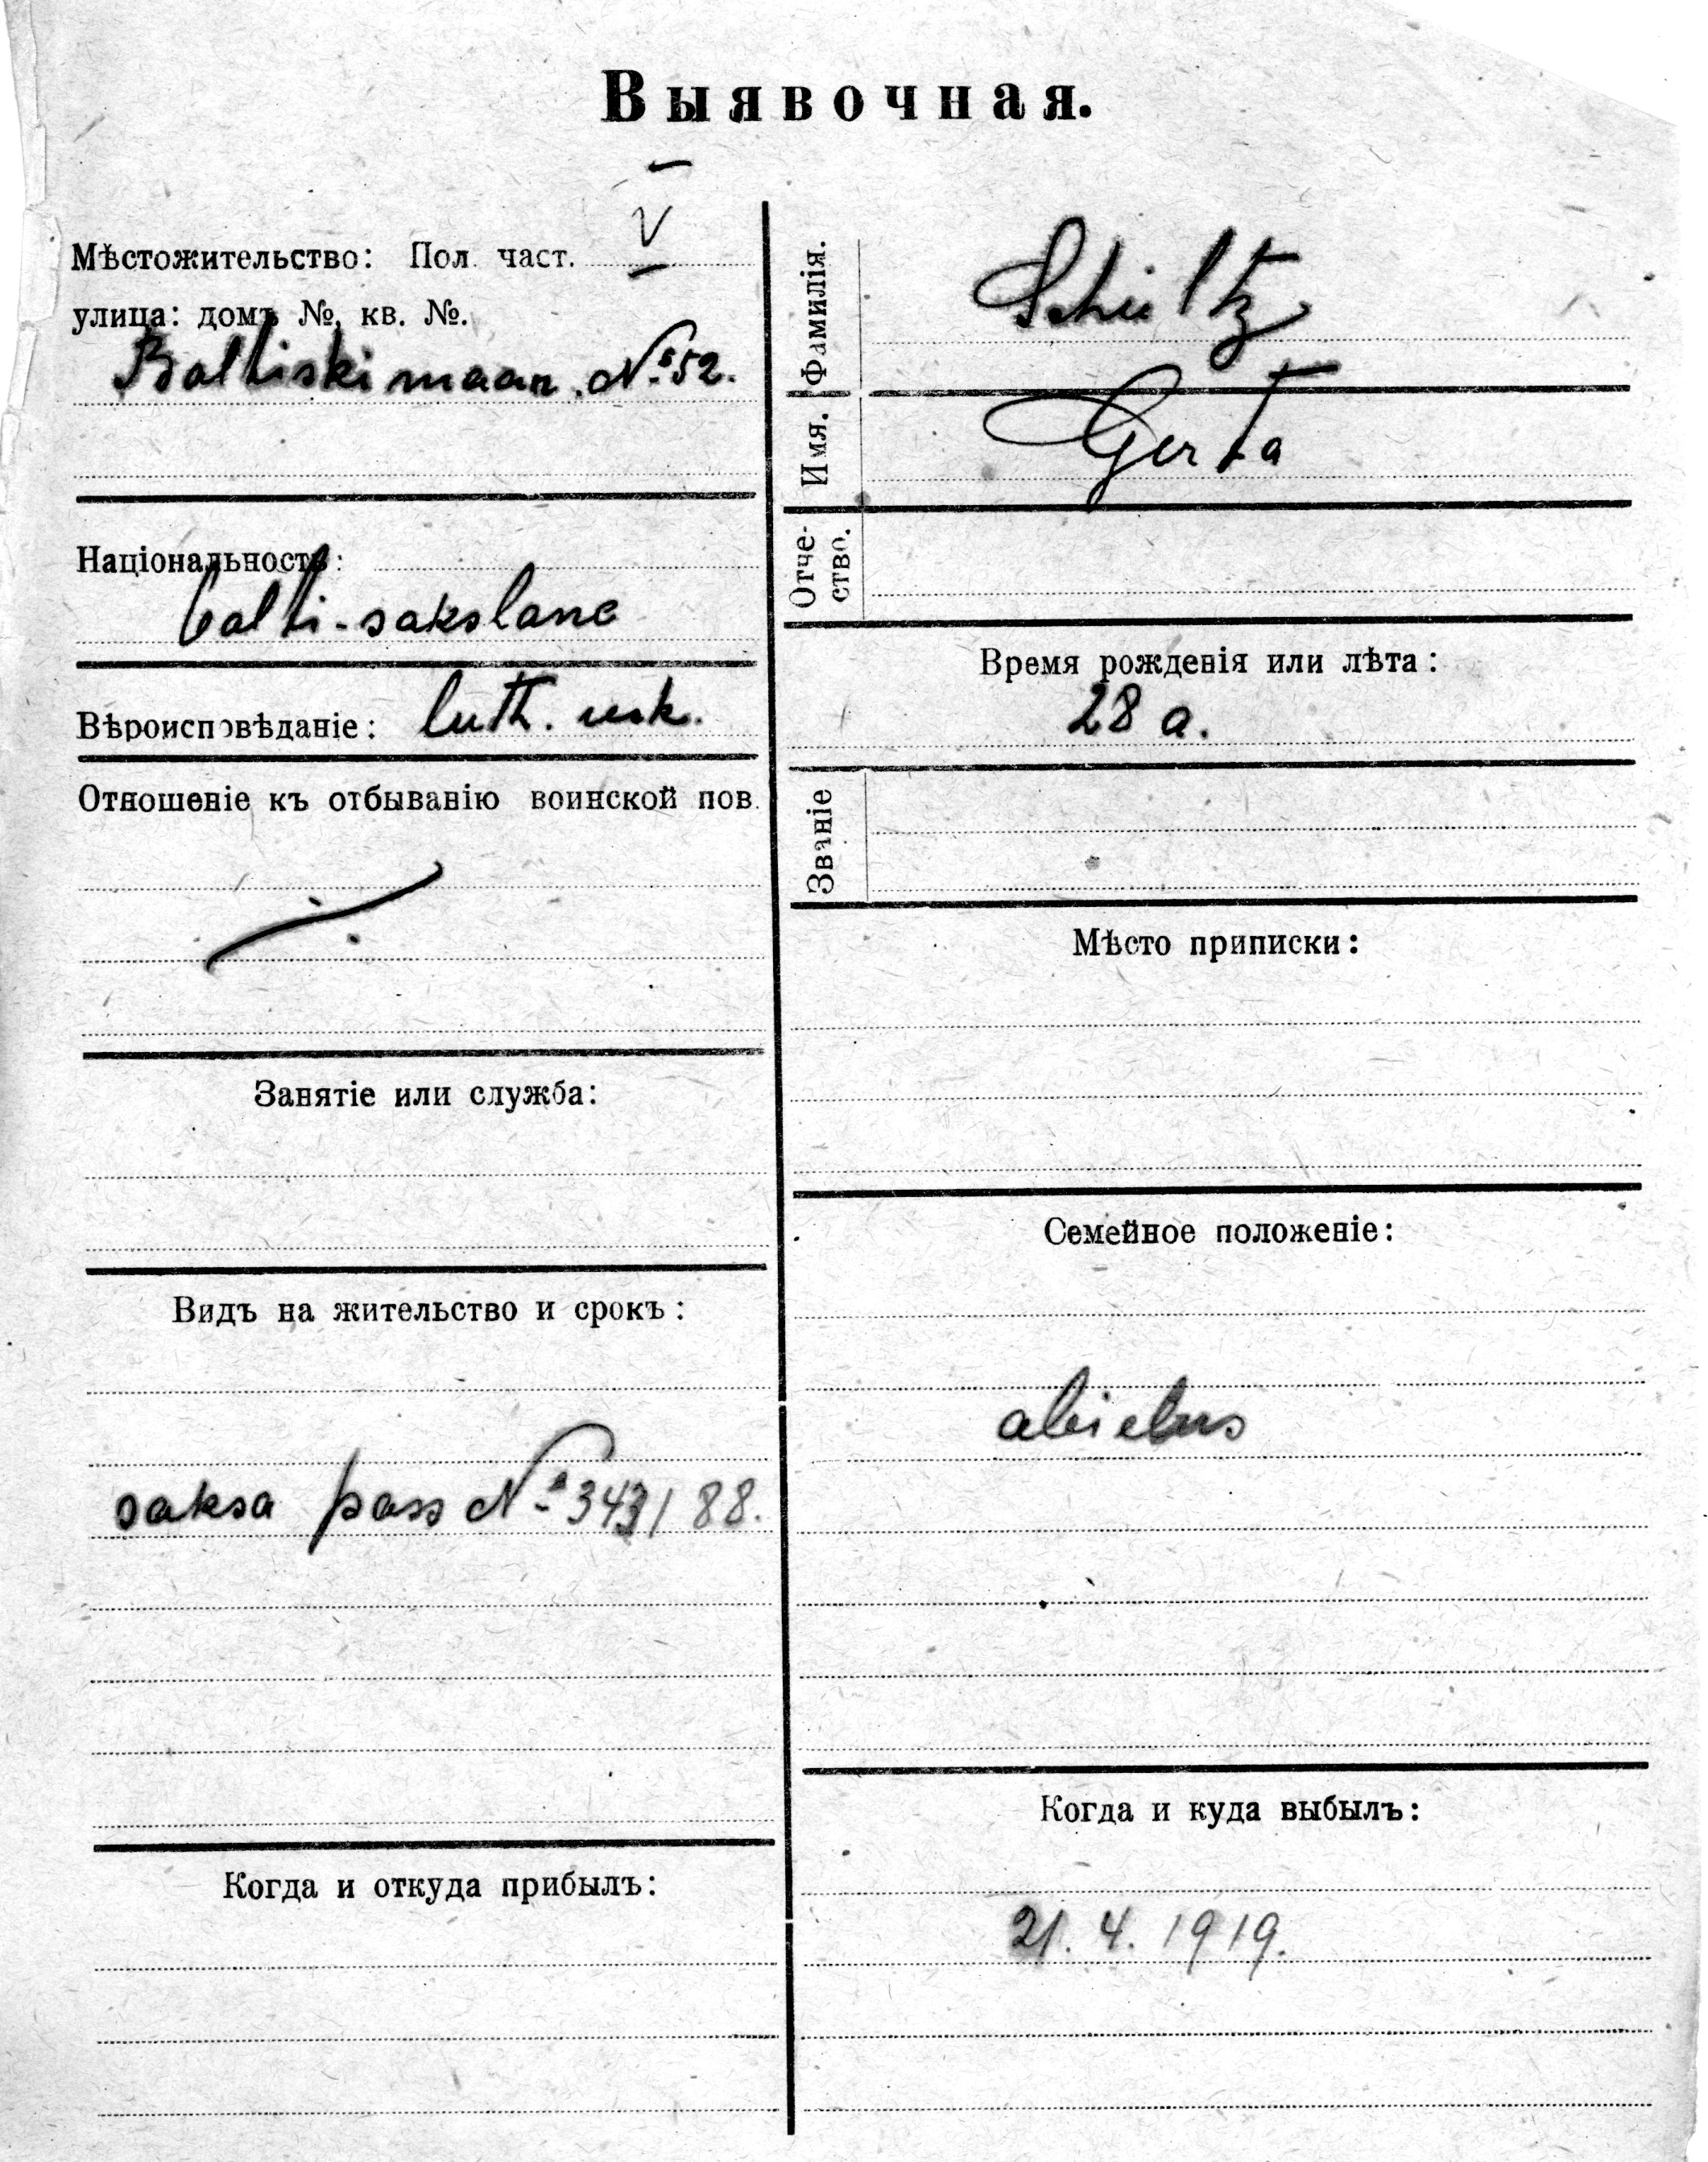 Выявочная.
V
Мѣстожительство: Пол. част.
улица: домъ №, кв. №.
Baltiski maan. № 52.
Національность:
balti-sakslane
Вѣроисповѣданіе: luth. usk.
Отношеніе къ отбыванію воинской пов.
Занятіе или служба:
Видъ на жительство и срокъ:
saksa pass № 3431/88.
Когда и откуда прибылъ:
Фамилія. Schultz
Имя. Gerta
Отче-
ство.
Время рожденія или лѣта:
28 a.
Званіе
Мѣсто приписки:
Семейное положеніе:
abielus
Когда и куда выбылъ:
21. 4. 1919.